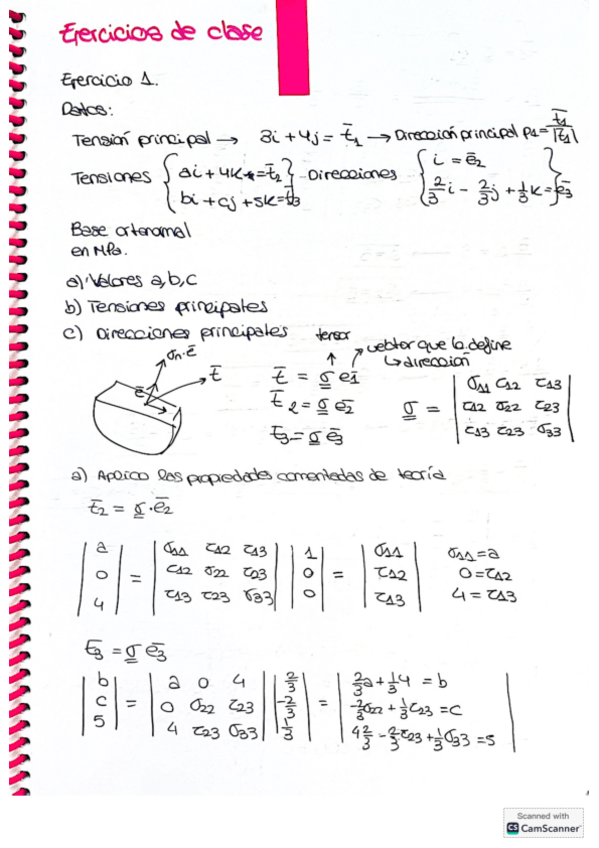 Ejercicios de clase
Ejercicio 1.
Datos:
Tensión principal → 3i + 4j = t̄₁ → Dirección principal p₁ = t̄₁/|t̄₁|
Tensiones { ai + 4k = t̄₂ } Direcciones { i = ē₂
{ bi + cj + 5k = t̄₃ { 2/3 i - 2/3 j + 1/3 k = ē₃
Base ortonormal
en MPa.
a) Valores a, b, c
b) Tensiones principales
c) Direcciones principales
tensor
vector que la define
↳ dirección
σn·ē
t̄
ē
t̄ = σ ē₁
t̄₂ = σ ē₂
t̄₃ = σ ē₃
σ = | σ₁₁ τ₁₂ τ₁₃ |
| τ₁₂ σ₂₂ τ₂₃ |
| τ₁₃ τ₂₃ σ₃₃ |
a) Aplico las propiedades comentadas de teoría
t̄₂ = σ · ē₂
| a | | σ₁₁ τ₁₂ τ₁₃ | | 1 | | σ₁₁ | σ₁₁ = a
| 0 | = | τ₁₂ σ₂₂ τ₂₃ | | 0 | = | τ₁₂ | 0 = τ₁₂
| 4 | | τ₁₃ τ₂₃ σ₃₃ | | 0 | | τ₁₃ | 4 = τ₁₃
t̄₃ = σ ē₃
| b | | a 0 4 | | 2/3 | | 2/3 a + 1/3 4 = b |
| c | = | 0 σ₂₂ τ₂₃ | | -2/3 | = | -2/3 σ₂₂ + 1/3 τ₂₃ = c |
| 5 | | 4 τ₂₃ σ₃₃ | | 1/3 | | 4 2/3 - 2/3 τ₂₃ + 1/3 σ₃₃ = 5 |
Scanned with
CS CamScanner